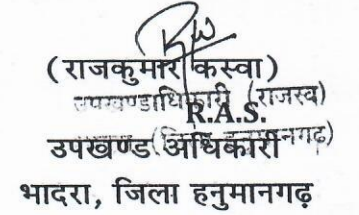 (राजकुमार कस्वा)
उपखण्डाधिकारी (राजस्व)
R.A.S.
उपखण्ड अधिकारी
भादरा, जिला हनुमानगढ़